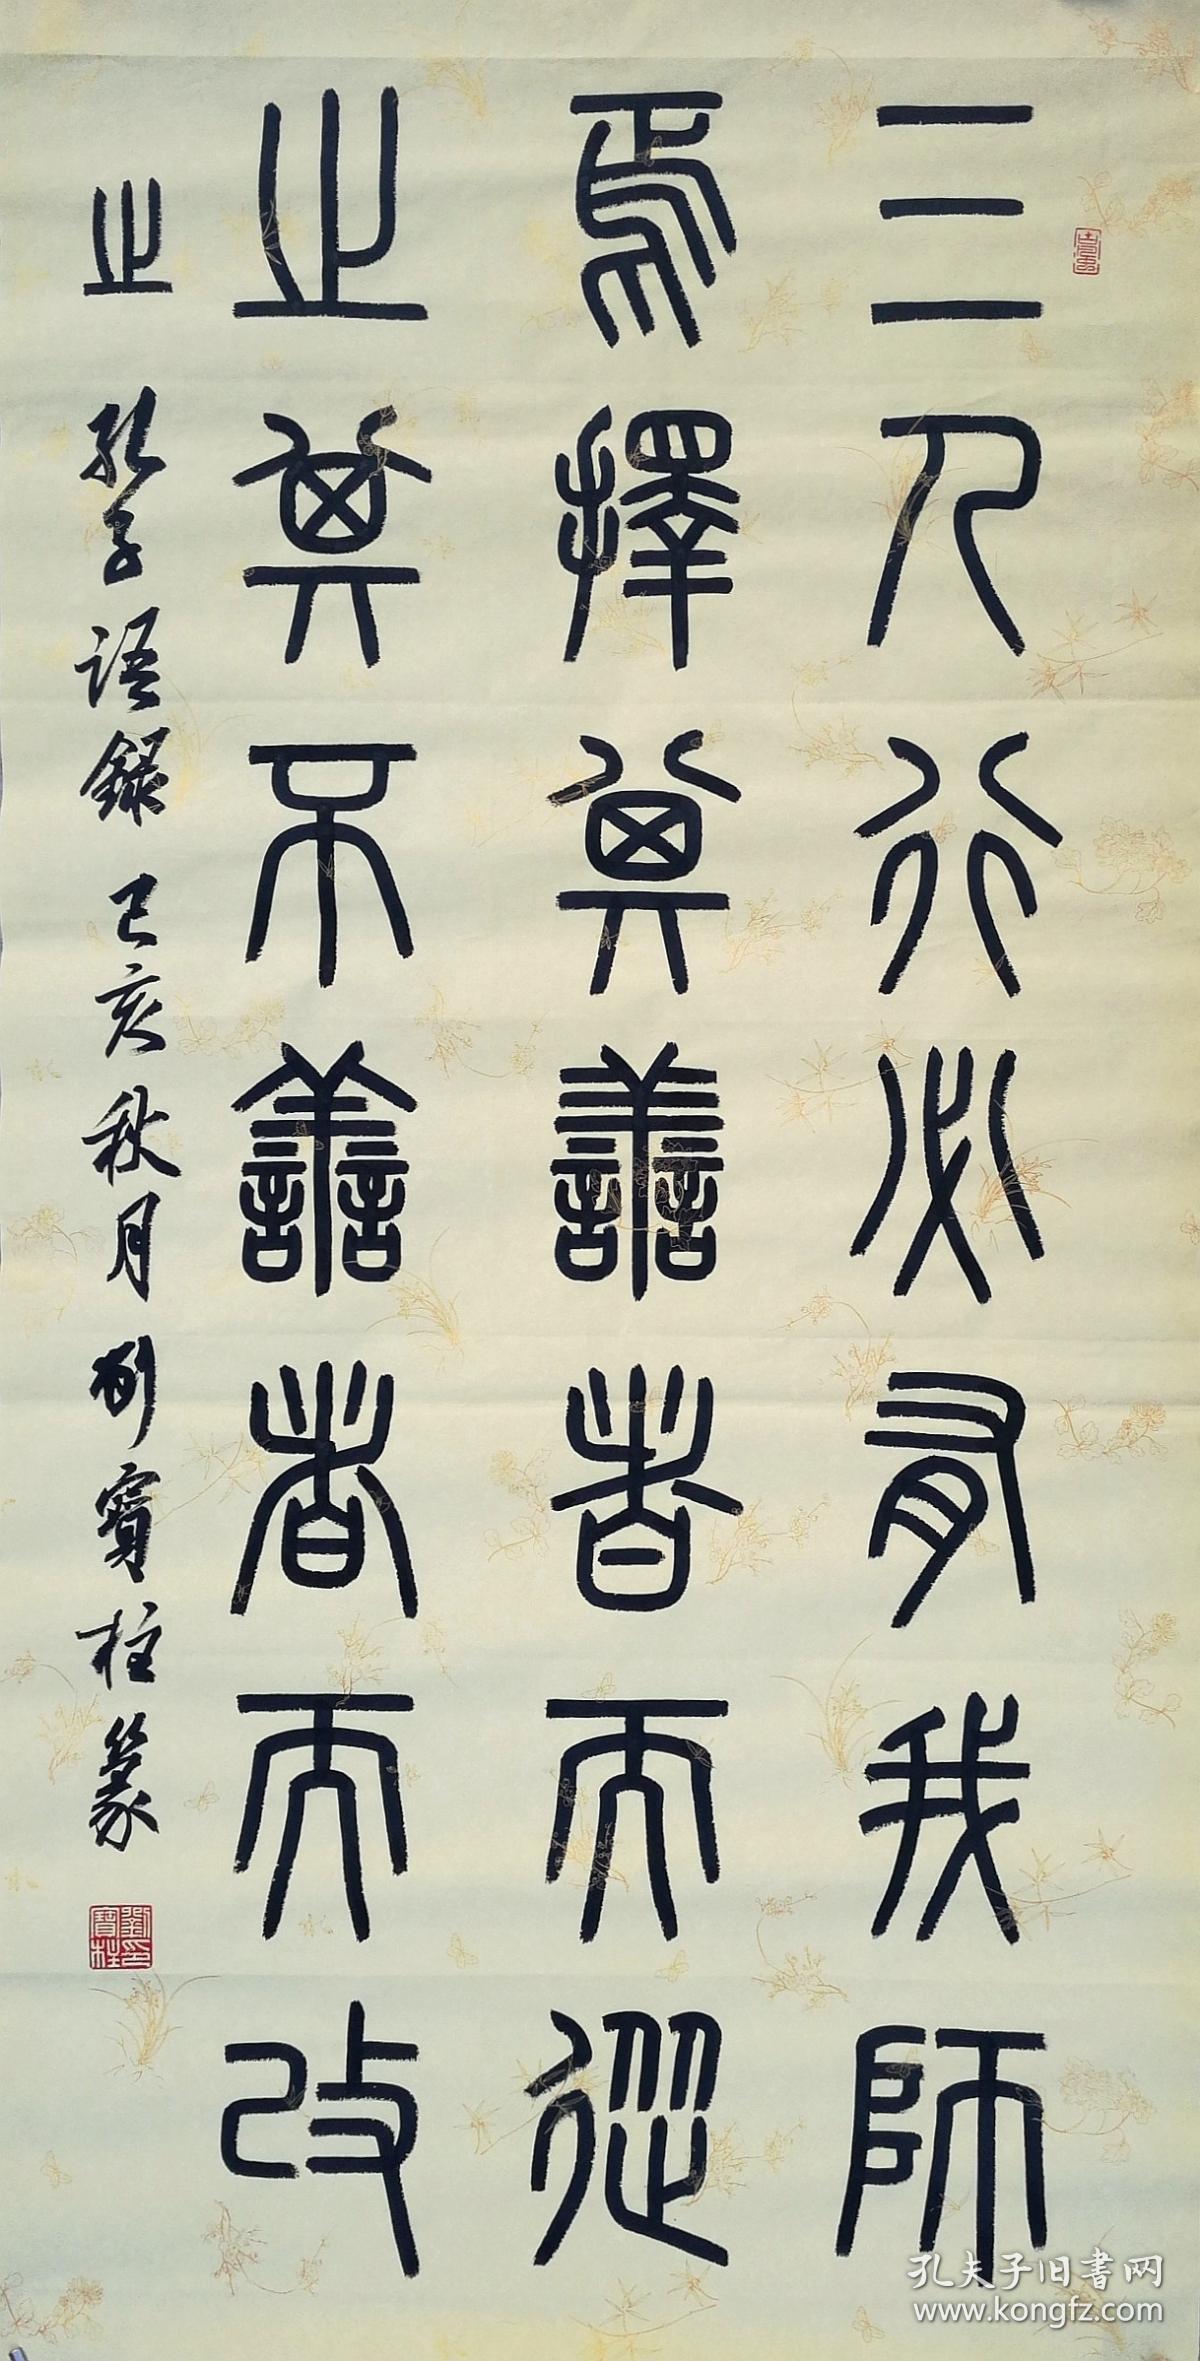 三人行必有我師
焉擇其善者而從
之其不善者而改
之 孔子語錄 己亥秋月 劉寶柱篆
劉寶柱印
孔夫子旧书网
www.kongfz.com